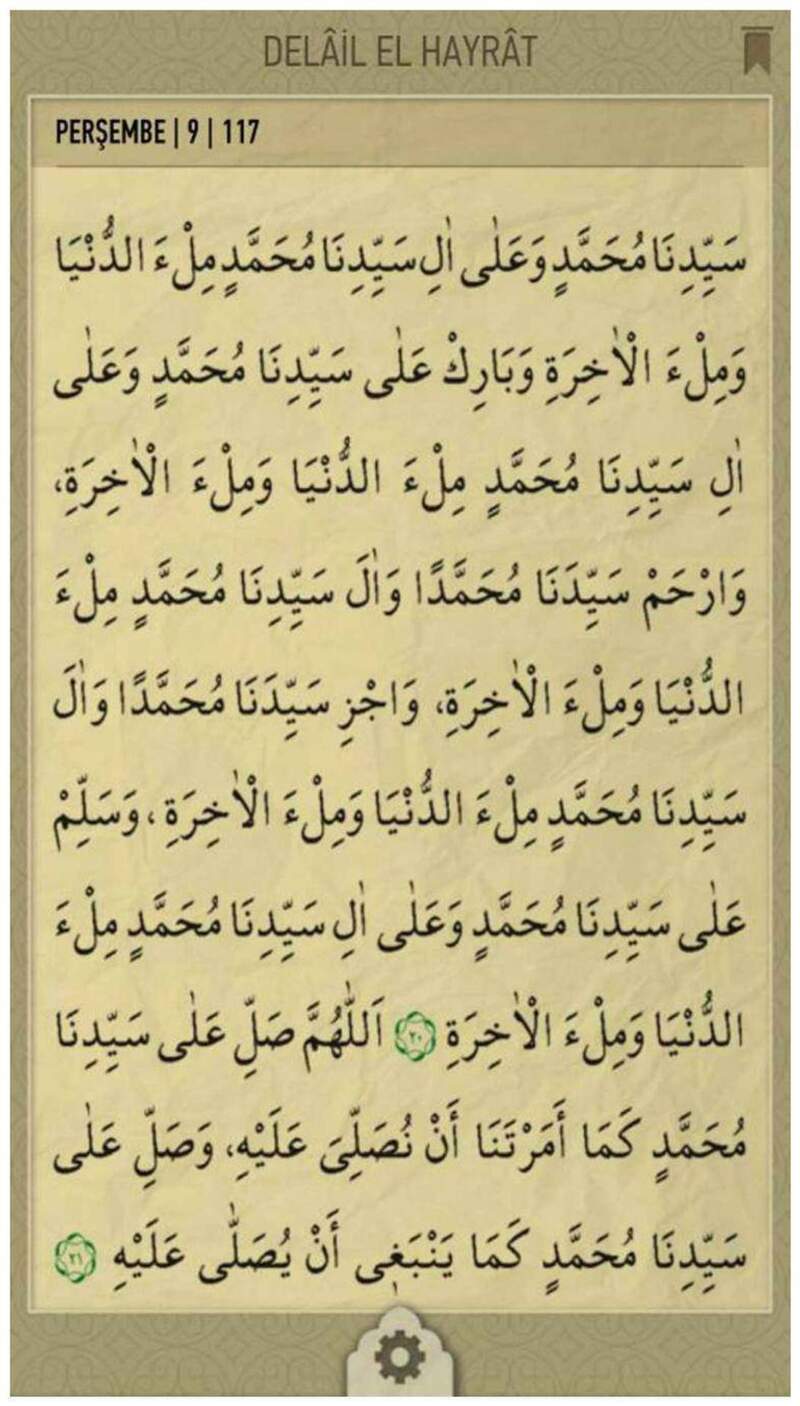 DELÂİL EL HAYRÂT
PERŞEMBE | 9 | 117
سَيِّدِنَا مُحَمَّدٍ وَعَلٰى اٰلِ سَيِّدِنَا مُحَمَّدٍ مِلْءَ الدُّنْيَا
وَمِلْءَ الْاٰخِرَةِ وَبَارِكْ عَلٰى سَيِّدِنَا مُحَمَّدٍ وَعَلٰى
اٰلِ سَيِّدِنَا مُحَمَّدٍ مِلْءَ الدُّنْيَا وَمِلْءَ الْاٰخِرَةِ،
وَارْحَمْ سَيِّدَنَا مُحَمَّدًا وَاٰلَ سَيِّدِنَا مُحَمَّدٍ مِلْءَ
الدُّنْيَا وَمِلْءَ الْاٰخِرَةِ، وَاجْزِ سَيِّدَنَا مُحَمَّدًا وَاٰلَ
سَيِّدِنَا مُحَمَّدٍ مِلْءَ الدُّنْيَا وَمِلْءَ الْاٰخِرَةِ، وَسَلِّمْ
عَلٰى سَيِّدِنَا مُحَمَّدٍ وَعَلٰى اٰلِ سَيِّدِنَا مُحَمَّدٍ مِلْءَ
الدُّنْيَا وَمِلْءَ الْاٰخِرَةِ ٢٠ اَللّٰهُمَّ صَلِّ عَلٰى سَيِّدِنَا
مُحَمَّدٍ كَمَا أَمَرْتَنَا أَنْ نُصَلِّىَ عَلَيْهِ، وَصَلِّ عَلٰى
سَيِّدِنَا مُحَمَّدٍ كَمَا يَنْبَغِى أَنْ يُصَلّٰى عَلَيْهِ ٢١